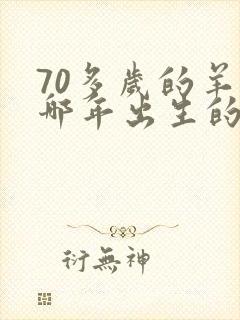 70多歲的羊
那年出生的
衍無神